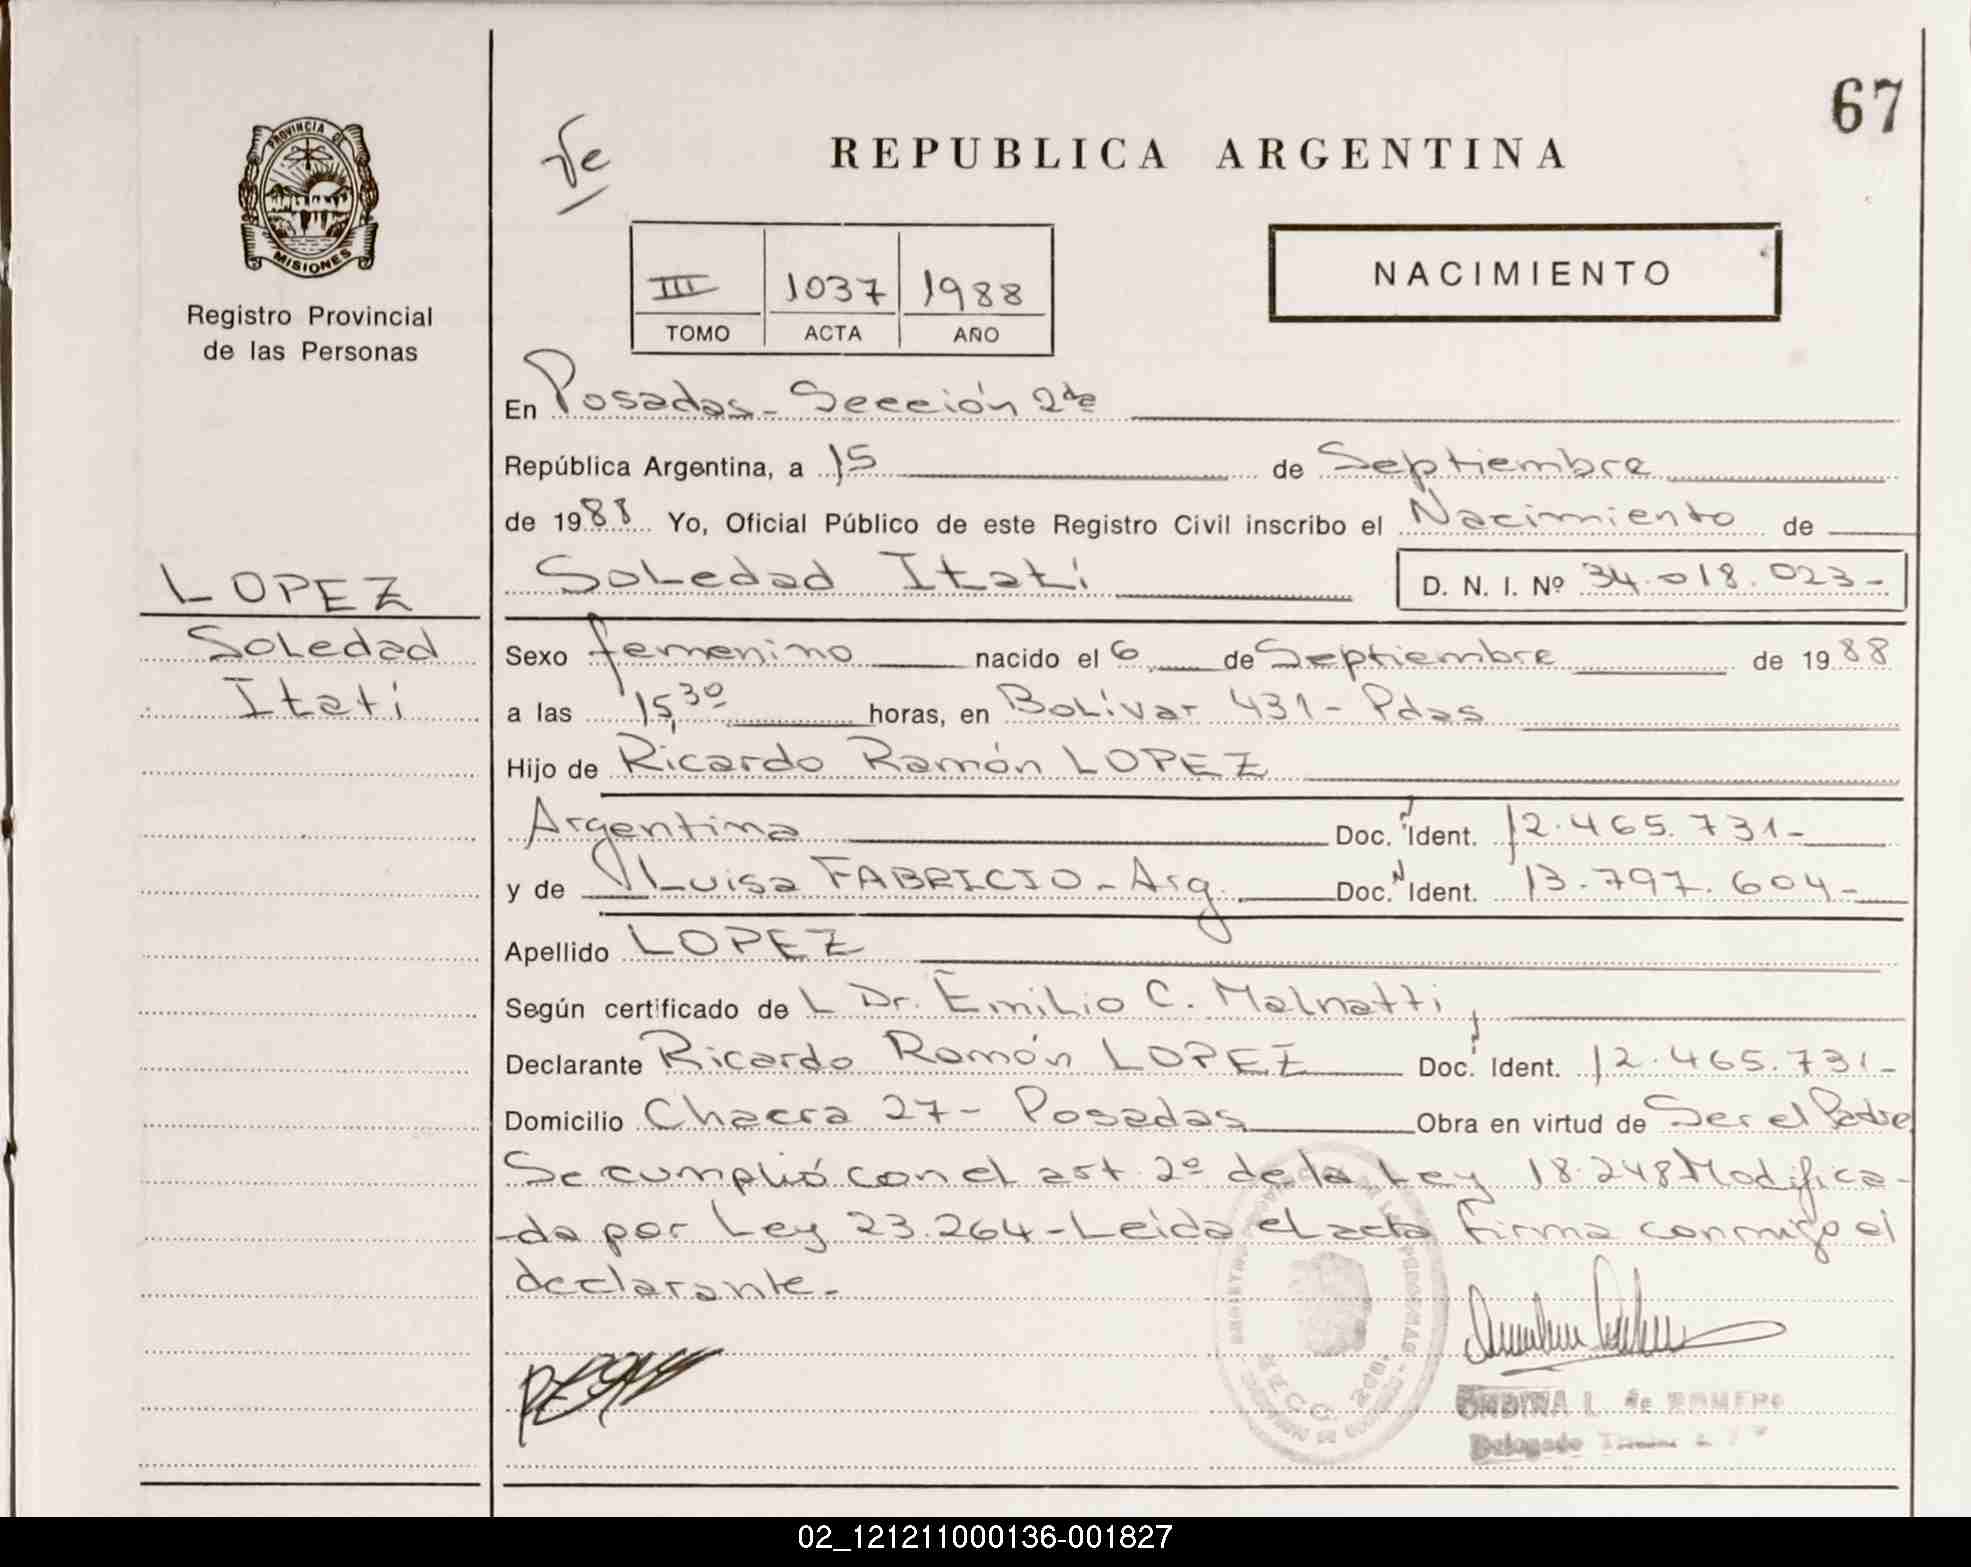 67
REPUBLICA ARGENTINA
PROVINCIA DE
MISIONES
Registro Provincial
de las Personas
III 1037 1988
TOMO ACTA AÑO
NACIMIENTO
En Posadas - Sección 2da
República Argentina, a 15 de Septiembre
de 1988 Yo, Oficial Público de este Registro Civil inscribo el Nacimiento de
Soledad Itatí D. N. I. Nº 34.018.023-
LOPEZ
Soledad
Itatí
Sexo femenino nacido el 6 de Septiembre de 1988
a las 15,30 horas, en Bolívar 431 - Pdas
Hijo de Ricardo Ramón LOPEZ
Argentina Doc. Ident. 12.465.731-
y de Luisa FABRICIO - Arg. Doc. Ident. 13.797.604-
Apellido LOPEZ
Según certificado de L Dr. Emilio C. Malnatti
Declarante Ricardo Ramón LOPEZ Doc. Ident. 12.465.731-
Domicilio Chacra 27 - Posadas Obra en virtud de Ser el Padre
Se cumplió con el art 2º de la Ley 18.248 Modifica-
-da por Ley 23.264 - Leída el acta firma conmigo el
declarante.-
ONDINA L. de ROMERO
Delegado
02_121211000136-001827